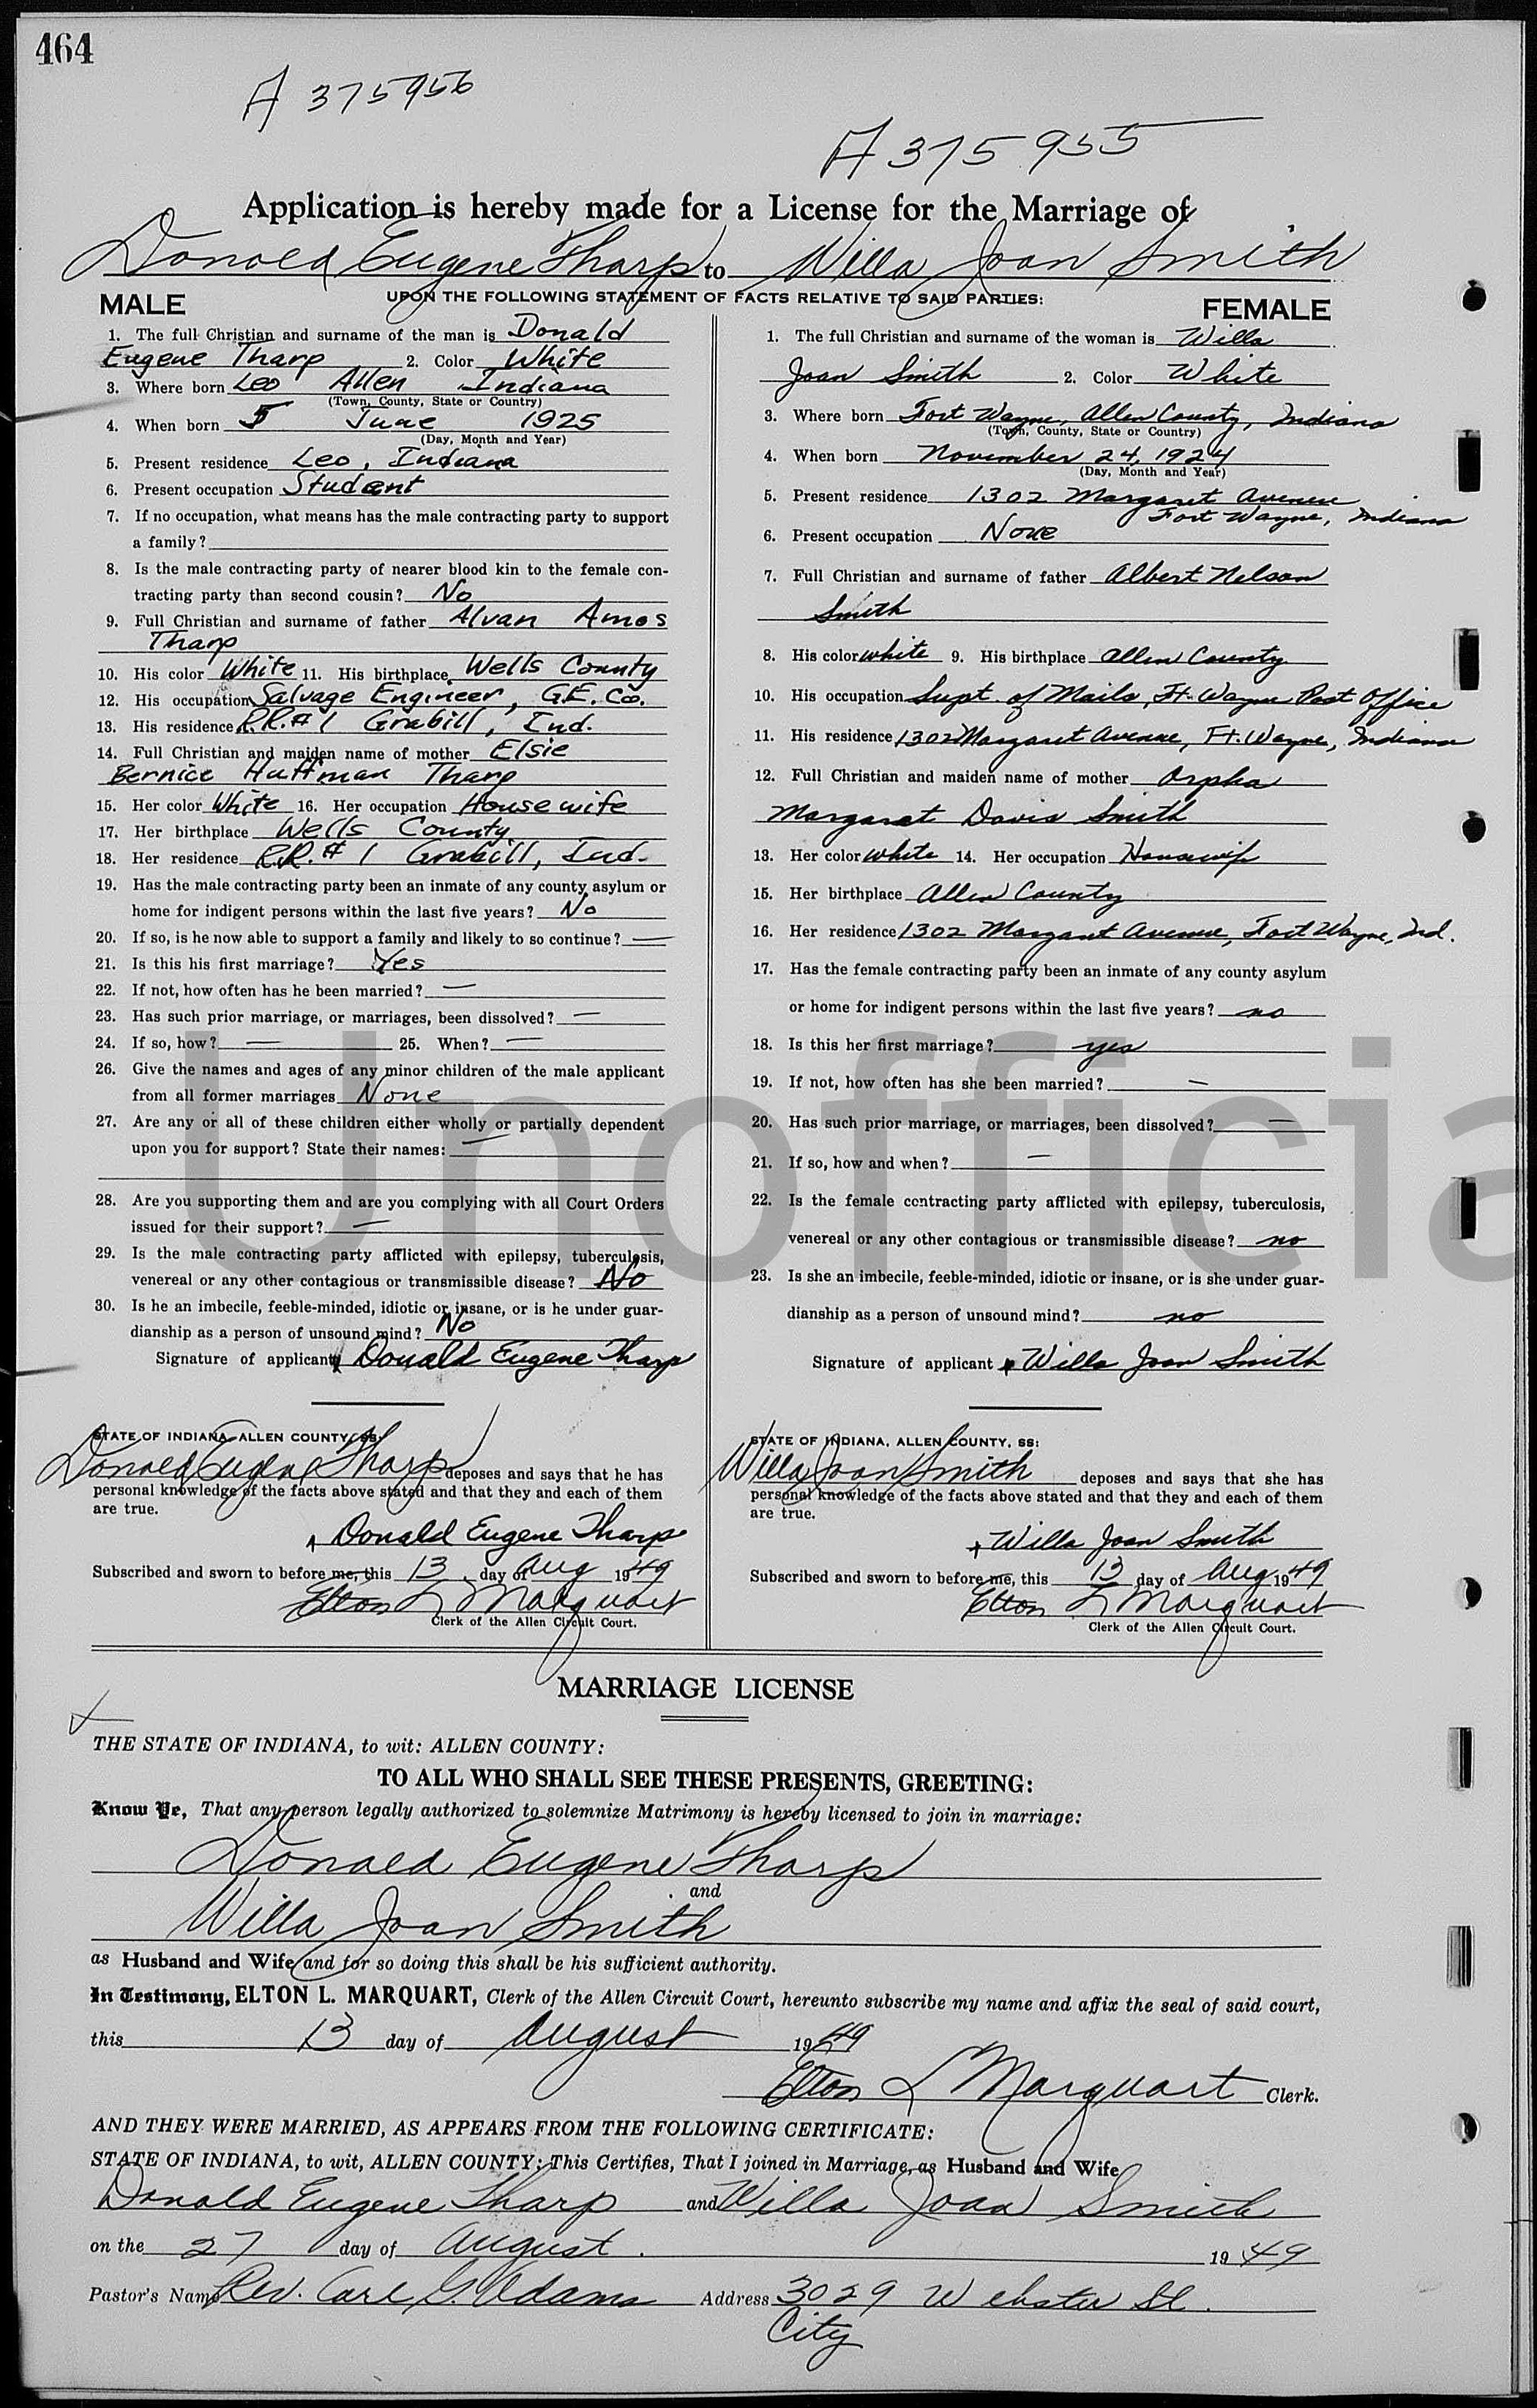 464
A 375956
A 375955
Application is hereby made for a License for the Marriage of
Donald Eugene Tharp to Willa Joan Smith
UPON THE FOLLOWING STATEMENT OF FACTS RELATIVE TO SAID PARTIES:
MALE
1. The full Christian and surname of the man is Donald
Eugene Tharp 2. Color White
3. Where born Leo Allen Indiana
(Town, County, State or Country)
4. When born 5 June 1925
(Day, Month and Year)
5. Present residence Leo, Indiana
6. Present occupation Student
7. If no occupation, what means has the male contracting party to support
a family?
8. Is the male contracting party of nearer blood kin to the female con-
tracting party than second cousin? No
9. Full Christian and surname of father Alvan Amos
Tharp
10. His color White 11. His birthplace Wells County
12. His occupation Salvage Engineer, G.E. Co.
13. His residence R.R.# 1 Grabill, Ind.
14. Full Christian and maiden name of mother Elsie
Bernice Huffman Tharp
15. Her color White 16. Her occupation Housewife
17. Her birthplace Wells County
18. Her residence R.R.# 1 Grabill, Ind.
19. Has the male contracting party been an inmate of any county asylum or
home for indigent persons within the last five years? No
20. If so, is he now able to support a family and likely to so continue? —
21. Is this his first marriage? Yes
22. If not, how often has he been married? —
23. Has such prior marriage, or marriages, been dissolved? —
24. If so, how? — 25. When? —
26. Give the names and ages of any minor children of the male applicant
from all former marriages None
27. Are any or all of these children either wholly or partially dependent
upon you for support? State their names: —
28. Are you supporting them and are you complying with all Court Orders
issued for their support? —
29. Is the male contracting party afflicted with epilepsy, tuberculosis,
venereal or any other contagious or transmissible disease? No
30. Is he an imbecile, feeble-minded, idiotic or insane, or is he under guar-
dianship as a person of unsound mind? No
Signature of applicant x Donald Eugene Tharp
STATE OF INDIANA, ALLEN COUNTY, SS:
Donald Eugene Tharp deposes and says that he has
personal knowledge of the facts above stated and that they and each of them
are true.
x Donald Eugene Tharp
Subscribed and sworn to before me, this 13 day of Aug 1949
Elton L Marquart
Clerk of the Allen Circuit Court.
FEMALE
1. The full Christian and surname of the woman is Willa
Joan Smith 2. Color White
3. Where born Fort Wayne, Allen County, Indiana
(Town, County, State or Country)
4. When born November 24, 1924
(Day, Month and Year)
5. Present residence 1302 Margaret Avenue
Fort Wayne, Indiana
6. Present occupation None
7. Full Christian and surname of father Albert Nelson
Smith
8. His color white 9. His birthplace Allen County
10. His occupation Supt. of Mails, Ft. Wayne Post Office
11. His residence 1302 Margaret Avenue, Ft. Wayne, Indiana
12. Full Christian and maiden name of mother Orpha
Margaret Davis Smith
13. Her color white 14. Her occupation Housewife
15. Her birthplace Allen County
16. Her residence 1302 Margaret Avenue, Fort Wayne, Ind.
17. Has the female contracting party been an inmate of any county asylum
or home for indigent persons within the last five years? no
18. Is this her first marriage? yes
19. If not, how often has she been married? —
20. Has such prior marriage, or marriages, been dissolved? —
21. If so, how and when? —
22. Is the female contracting party afflicted with epilepsy, tuberculosis,
venereal or any other contagious or transmissible disease? no
23. Is she an imbecile, feeble-minded, idiotic or insane, or is she under guar-
dianship as a person of unsound mind? no
Signature of applicant x Willa Joan Smith
STATE OF INDIANA, ALLEN COUNTY, SS:
Willa Joan Smith deposes and says that she has
personal knowledge of the facts above stated and that they and each of them
are true.
x Willa Joan Smith
Subscribed and sworn to before me, this 13 day of Aug 1949
Elton L Marquart
Clerk of the Allen Circuit Court.
Unofficia
MARRIAGE LICENSE
THE STATE OF INDIANA, to wit: ALLEN COUNTY:
TO ALL WHO SHALL SEE THESE PRESENTS, GREETING:
Know Ye, That any person legally authorized to solemnize Matrimony is hereby licensed to join in marriage:
Donald Eugene Tharp
and
Willa Joan Smith
as Husband and Wife and for so doing this shall be his sufficient authority.
In Testimony, ELTON L. MARQUART, Clerk of the Allen Circuit Court, hereunto subscribe my name and affix the seal of said court,
this 13 day of August 1949
Elton L Marquart Clerk.
AND THEY WERE MARRIED, AS APPEARS FROM THE FOLLOWING CERTIFICATE:
STATE OF INDIANA, to wit, ALLEN COUNTY: This Certifies, That I joined in Marriage, as Husband and Wife
Donald Eugene Tharp and Willa Joan Smith
on the 27 day of August. 1949
Pastor's Name Rev. Carl G. Adams Address 3029 Webster St.
City